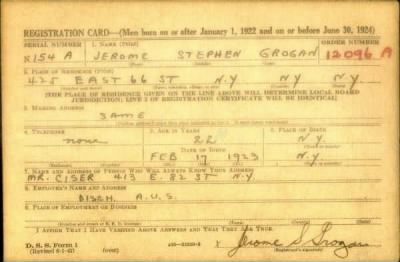 REGISTRATION CARD—(Men born on or after January 1, 1922 and on or before June 30, 1924)
SERIAL NUMBER 1. NAME (Print) ORDER NUMBER
N154A JEROME STEPHEN GROGAN 12096 A
2. PLACE OF RESIDENCE (Print)
425 EAST 66 ST N.Y N.Y N.Y
[THE PLACE OF RESIDENCE GIVEN ON THE LINE ABOVE WILL DETERMINE LOCAL BOARD
JURISDICTION; LINE 2 OF REGISTRATION CERTIFICATE WILL BE IDENTICAL]
3. MAILING ADDRESS
SAME
4. TELEPHONE 5. AGE IN YEARS 6. PLACE OF BIRTH
none 22 N.Y
DATE OF BIRTH
FEB 17 1923 N.Y.
7. NAME AND ADDRESS OF PERSON WHO WILL ALWAYS KNOW YOUR ADDRESS
MR. CISER 413 E. 82 ST N.Y
8. EMPLOYER'S NAME AND ADDRESS
DISCH. A.U.S.
9. PLACE OF EMPLOYMENT OR BUSINESS
I AFFIRM THAT I HAVE VERIFIED ABOVE ANSWERS AND THAT THEY ARE TRUE.
D. S. S. Form 1 (over) Jerome S Grogan